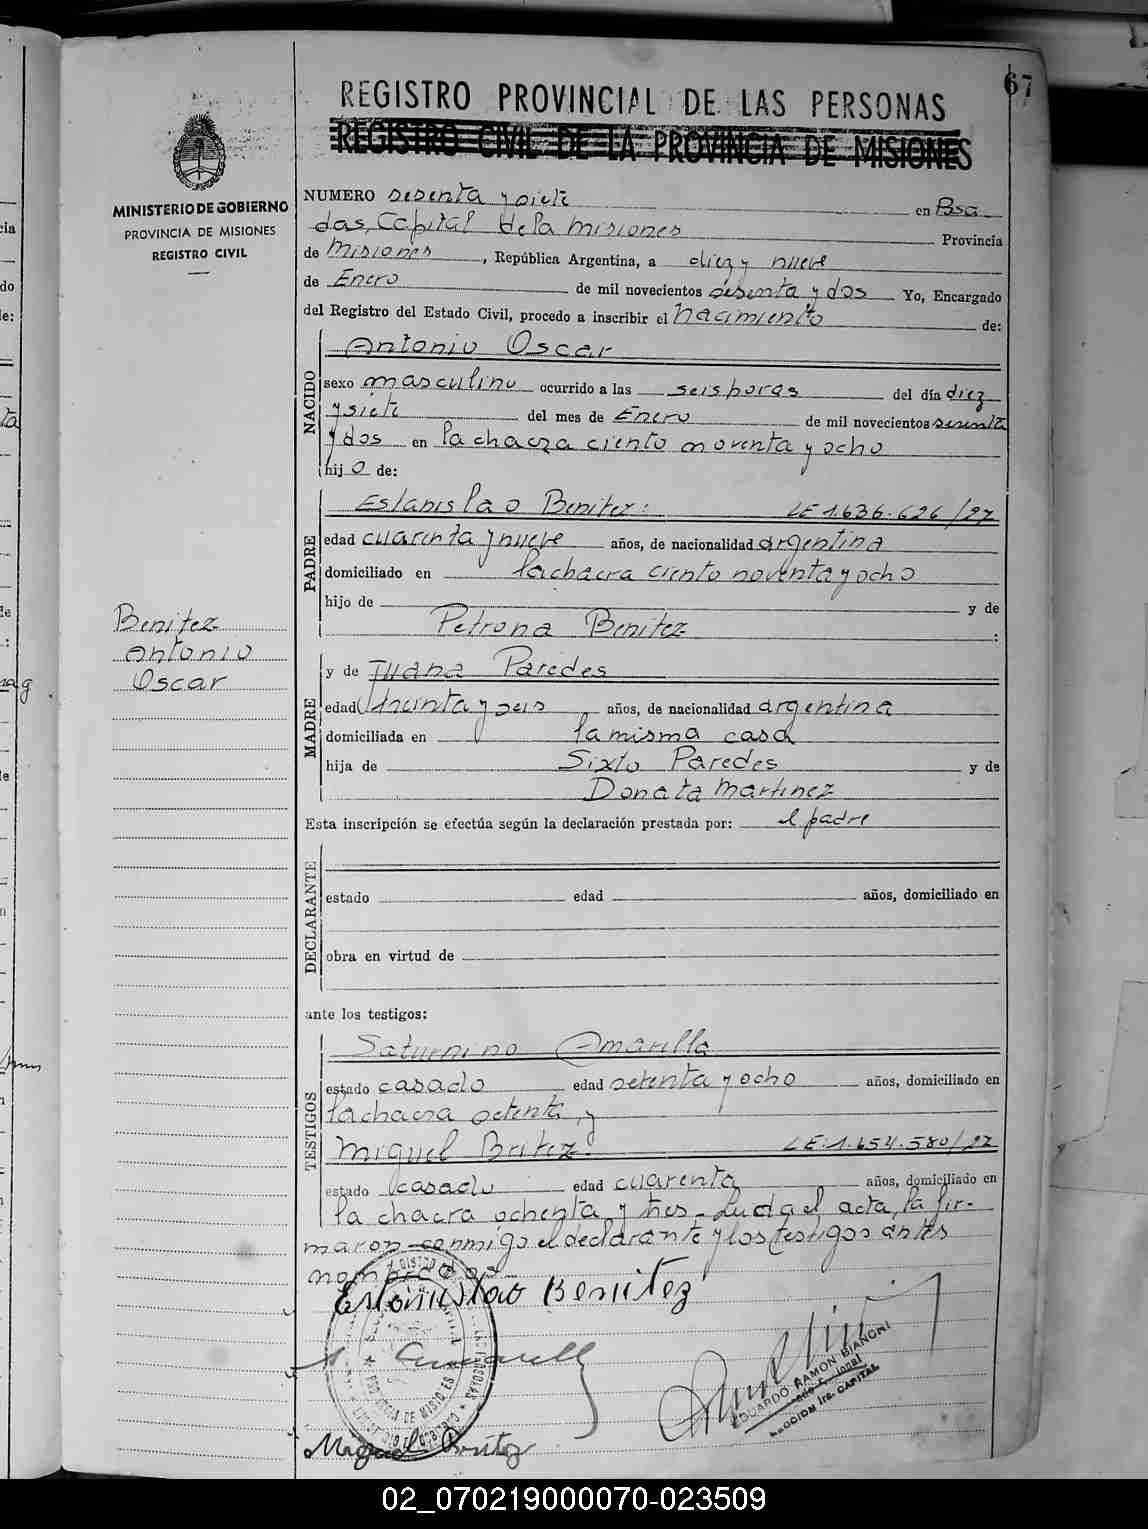 67
REGISTRO PROVINCIAL DE LAS PERSONAS
REGISTRO CIVIL DE LA PROVINCIA DE MISIONES
MINISTERIO DE GOBIERNO
PROVINCIA DE MISIONES
REGISTRO CIVIL
NUMERO sesenta y siete en Posa
das, Capital de la Misiones Provincia
de Misiones, República Argentina, a diez y nueve
de Enero de mil novecientos sesenta y dos Yo, Encargado
del Registro del Estado Civil, procedo a inscribir el Nacimiento de:
NACIDO
Antonio Oscar
sexo masculino ocurrido a las seis horas del día diez
y siete del mes de Enero de mil novecientos sesenta
y dos en la chacra ciento noventa y ocho
hijo de:
PADRE
Estanislao Benitez: LE 1.636.626/27
edad cuarenta y nueve años, de nacionalidad argentina
domiciliado en la chacra ciento noventa y ocho
hijo de y de
Petrona Benitez :
Benitez
Antonio
Oscar
MADRE
y de Juana Paredes
edad treinta y seis años, de nacionalidad argentina
domiciliada en la misma casa
hija de Sixto Paredes y de
Donata Martinez
Esta inscripción se efectúa según la declaración prestada por: el padre
DECLARANTE
estado edad años, domiciliado en
obra en virtud de
ante los testigos:
TESTIGOS
Saturnino Amarilla
estado casado edad setenta y ocho años, domiciliado en
la chacra setenta y
Miguel Britez: LE.1.654.580/27
estado casado edad cuarenta años, domiciliado en
la chacra ochenta y tres - Leida el acta, la fir-
maron conmigo el declarante y los testigos antes
nombrados
Estanislao Benitez
S. Amarilla
EDUARDO RAMON BIANCHI
SECCION 1ra. CAPITAL
Miguel Britez
02_070219000070-023509